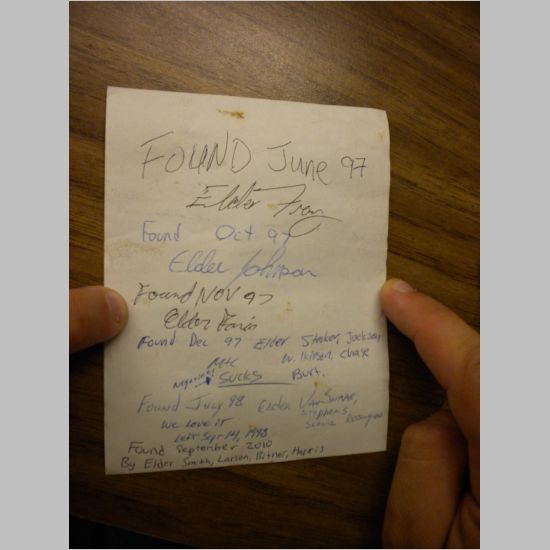 FOUND June 97
Elder
Found Oct 97
Elder Johnson
Found NOV 97
Elder
Found Dec 97 Elder Stoker, Jackson
Wilkinson, Chase
MTC Burt.
Negative! Sucks
Found July 98 Elder
We love it Stephens,
Left Sept 14, 1998
Found September 2010
By Elder Smith, Larsen, Bitner, Harris